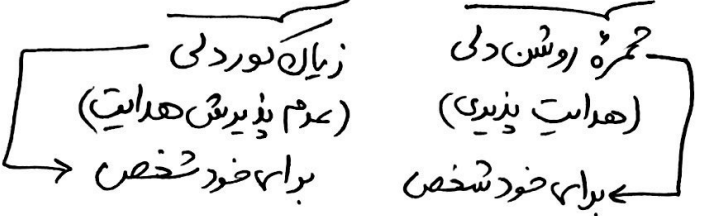 ثمرهٔ روشن دلی
(هدایت پذیری)
برای خود شخص
زیان کوردلی
(عدم پذیرش هدایت)
برای خود شخص